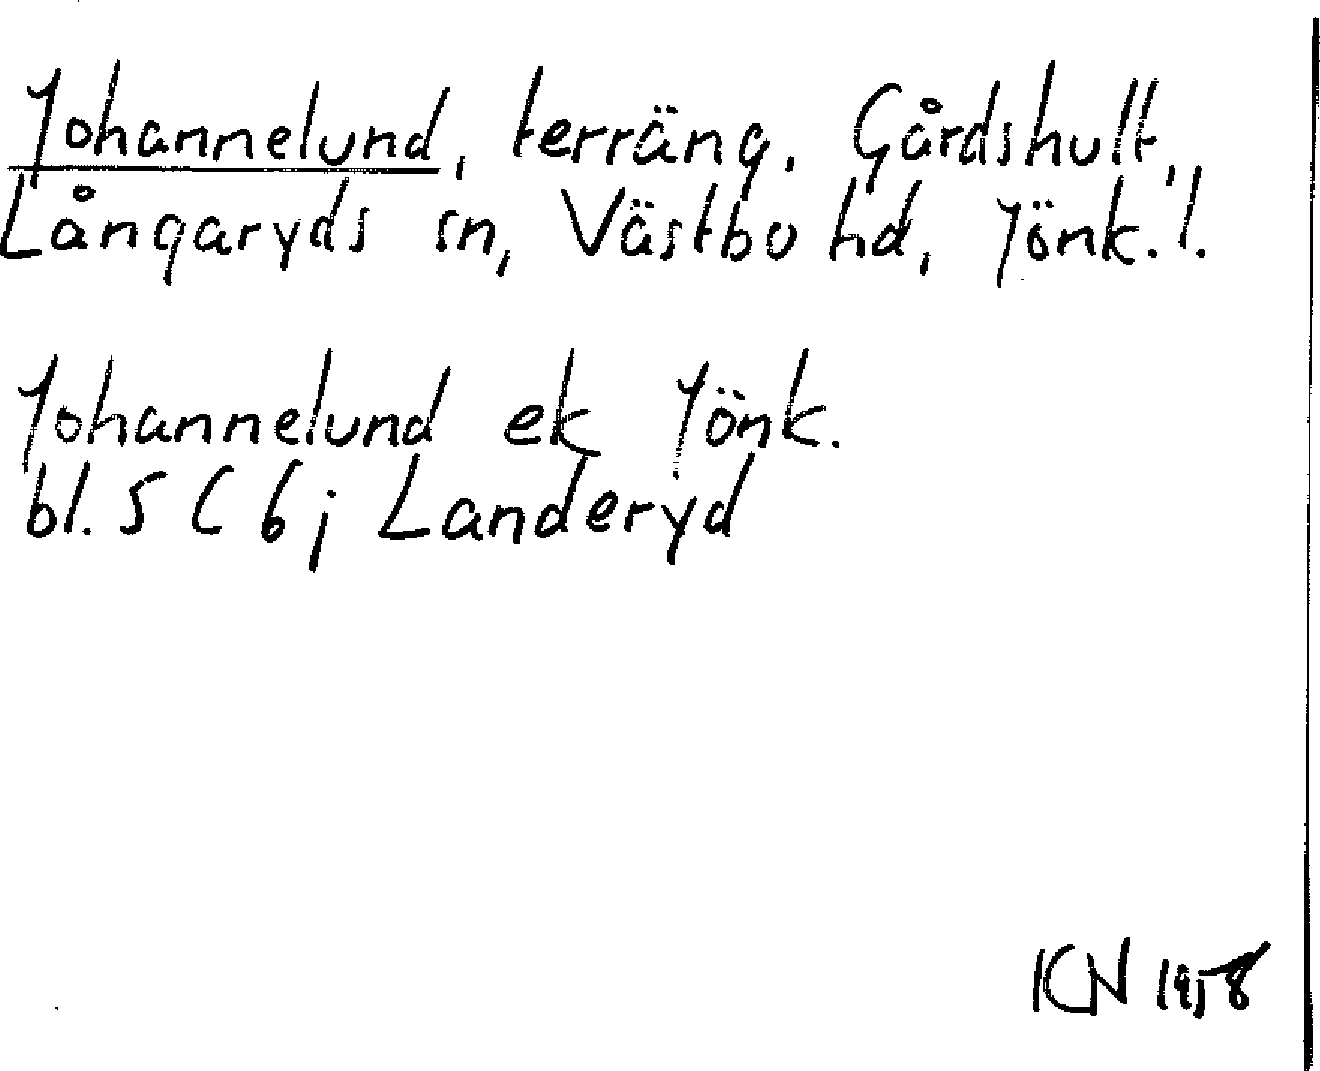 Johannelund, terräng, Gårdshult,
Långaryds sn, Västbo hd, Jönk. l.
Johannelund ek Jönk.
bl. 5 C 6 j Landeryd
KN 1958